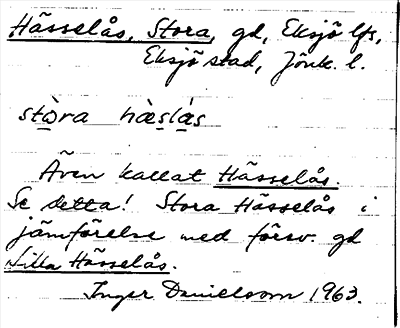 Hässelås, Stora, gd, Eksjö lfs,
Eksjö stad, Jönk. l.
stò̱ra hàs̱lá̱s
Även kallat Hässelås.
Se detta! Stora Hässelås i
jämförelse med försv. gd
Lilla Hässelås.
Inger Danielsson 1963.